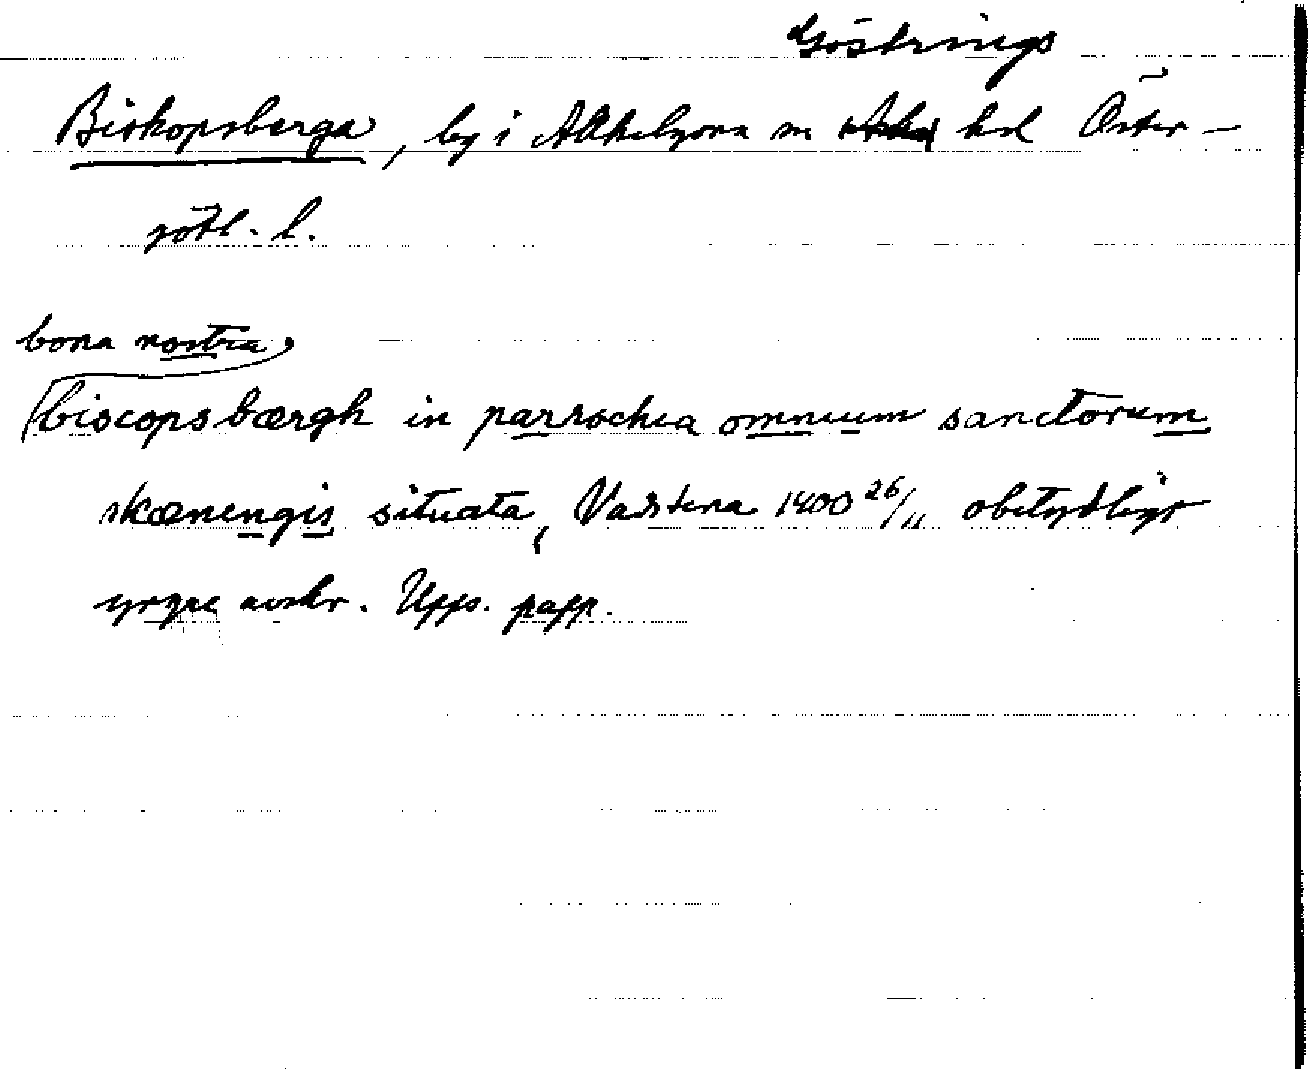 Göstrings
Biskopsberga, by i Allhelgona sn hd Öster-
götl. l.
bona nostra
biscopsbærgh in parrochia omnium sanctorum
skænengis situata, Vadstena 1400 26/11 obetydligt
yngre avskr. Upps. papp.